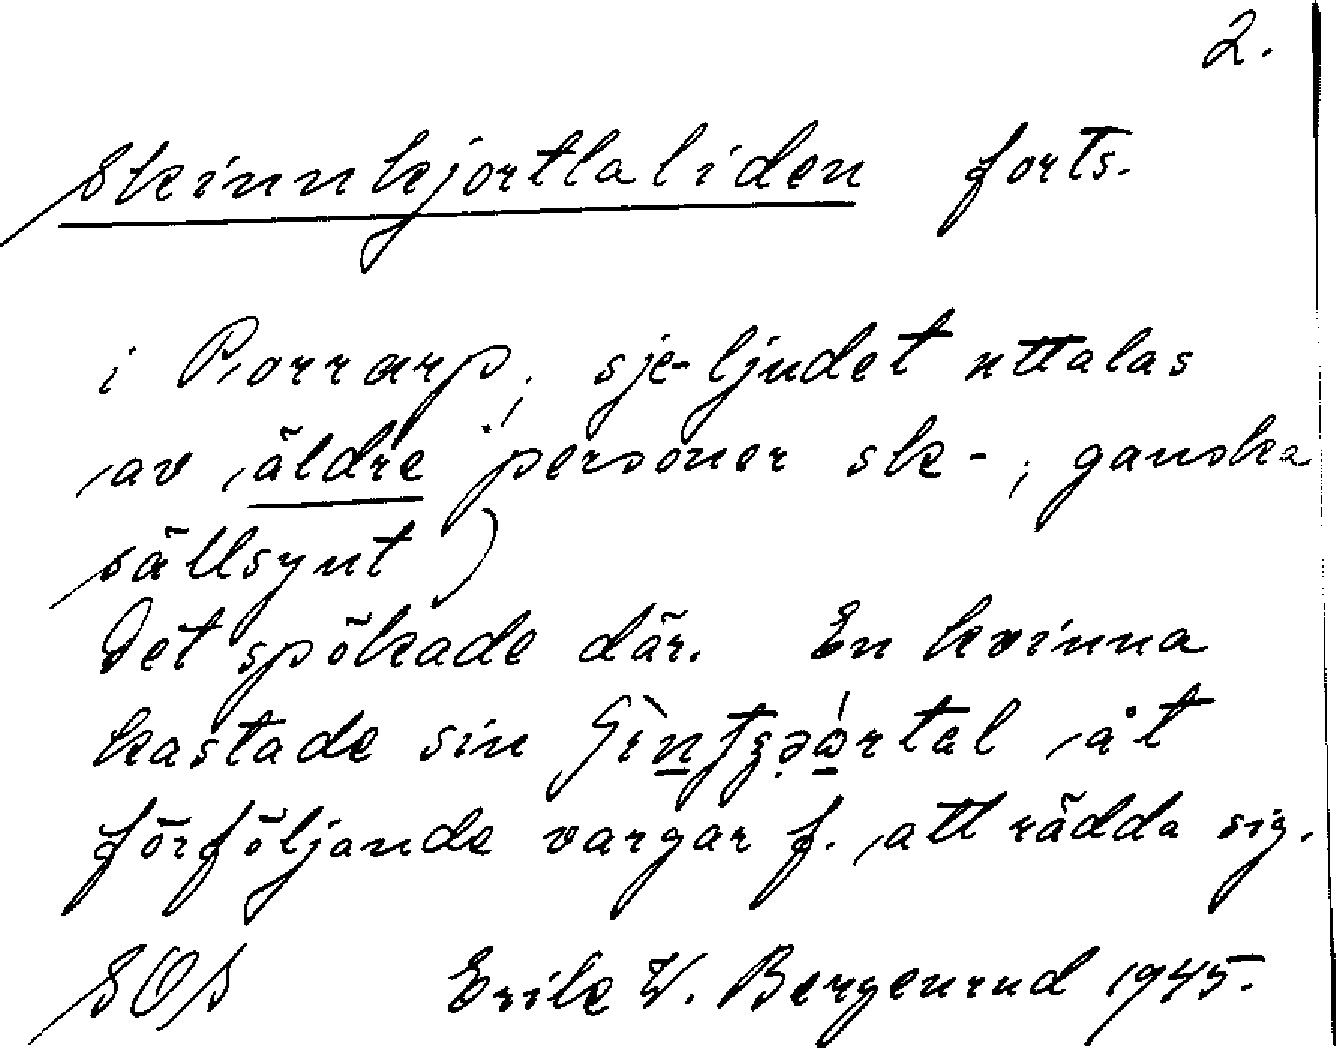 2.
Skinnkjortlaliden forts.
i Porrarp; sje-ljudet uttalas
av äldre personer sk-; ganska
sällsynt)
Det spökade där. En kvinna
kastade sin åt
förföljande vargar f. att rädda sig.
SOS Erik W. Bergenrud 1945.